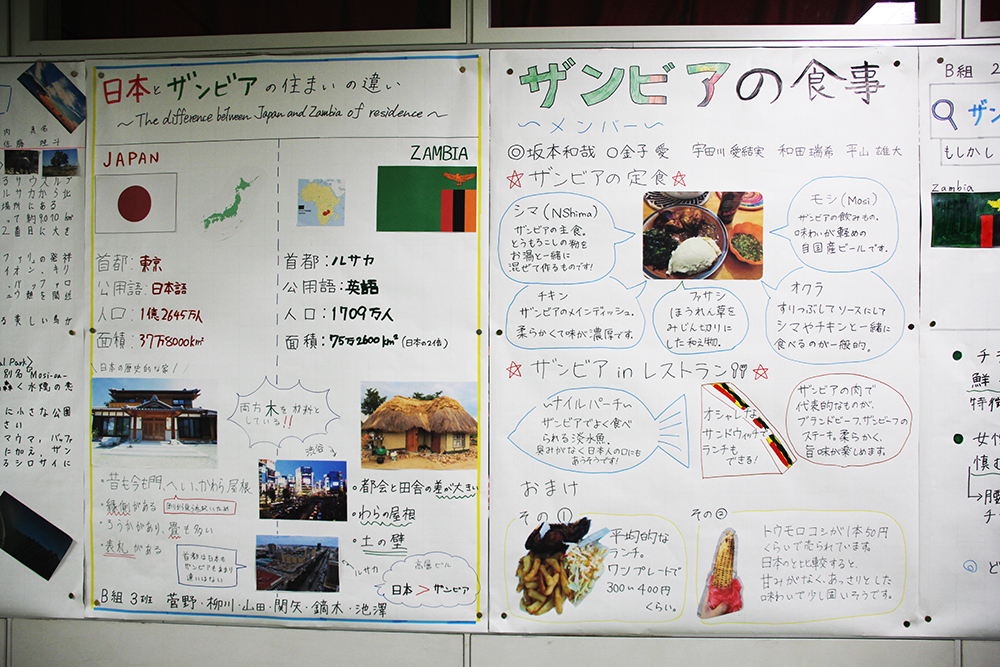 日本とザンビアの住まいの違い
〜The difference between Japan and Zambia of residence〜
JAPAN
首都：東京
公用語：日本語
人口：1億2645万人
面積：37万8000km²
ZAMBIA
首都：ルサカ
公用語：英語
人口：1709万人
面積：75万2600km²(日本の2倍)
日本の歴史的な家！
両方木を材料としている!!
渋谷
・昔も今も門、へい、かわら屋根
・縁側がある
・ろうかがあり、畳も多い
・表札がある
首都は日本も
ザンビアもあまり
違いはない
・都会と田舎の差が大きい
・わらの屋根
・土の壁
ルサカ
高層ビル
日本＞ザンビア
B組3班 菅野・柳川・山田・関矢・鏑木・池澤
ザンビアの食事
〜メンバー〜
◎坂本和哉 ○金子愛 宇田川愛結実 和田瑞希 平山雄大
☆ザンビアの定食☆
シマ(NShima)
ザンビアの主食。
とうもろこしの粉を
お湯と一緒に
混ぜて作るものです!
モシ(Mosi)
ザンビアの飲みもの。
味わいが軽めの
自国産ビールです。
チキン
ザンビアのメインディッシュ。
柔らかくて味が濃厚です。
ファサシ
ほうれん草を
みじん切りに
した和え物。
オクラ
すりつぶしてソースにして
シマやチキンと一緒に
食べるのが一般的。
☆ザンビア in レストラン!!☆
〜ナイルパーチ〜
ザンビアでよく食べ
られる淡水魚。
臭みがなく日本人の口にも
あうそうです!
オシャレな
サンドウィッチで
ランチも
できる!
ザンビアの肉で
代表的なものが、
ブランドビーフ、ザンビーフの
ステーキ。柔らかく、
旨味が楽しめます。
おまけ
その①
平均的な
ランチ。
ワンプレートで
300〜400円
くらい。
その②
トウモロコシが1本50円
くらいで売られています。
日本のと比較すると、
甘みがなく、あっさりとした
味わいで少し固いそうです。
B組 2
ザン
もしかし
Zambia